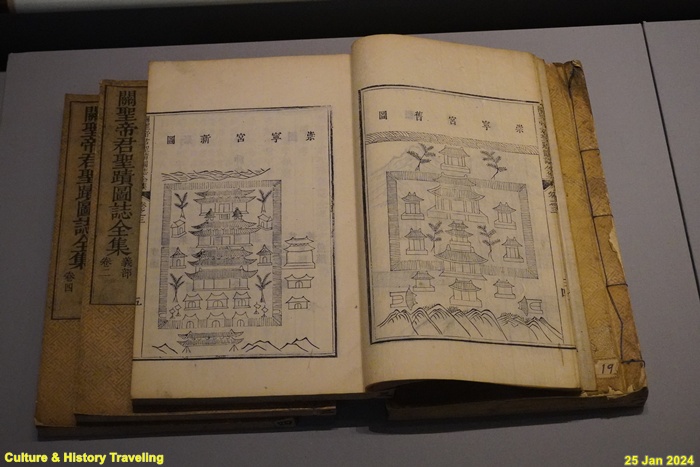 關聖帝君聖蹟圖誌全集 卷四
關聖帝君聖蹟圖誌全集 義部 卷二
崇寧宮舊圖
崇寧宮新圖
19
Culture & History Traveling
25 Jan 2024